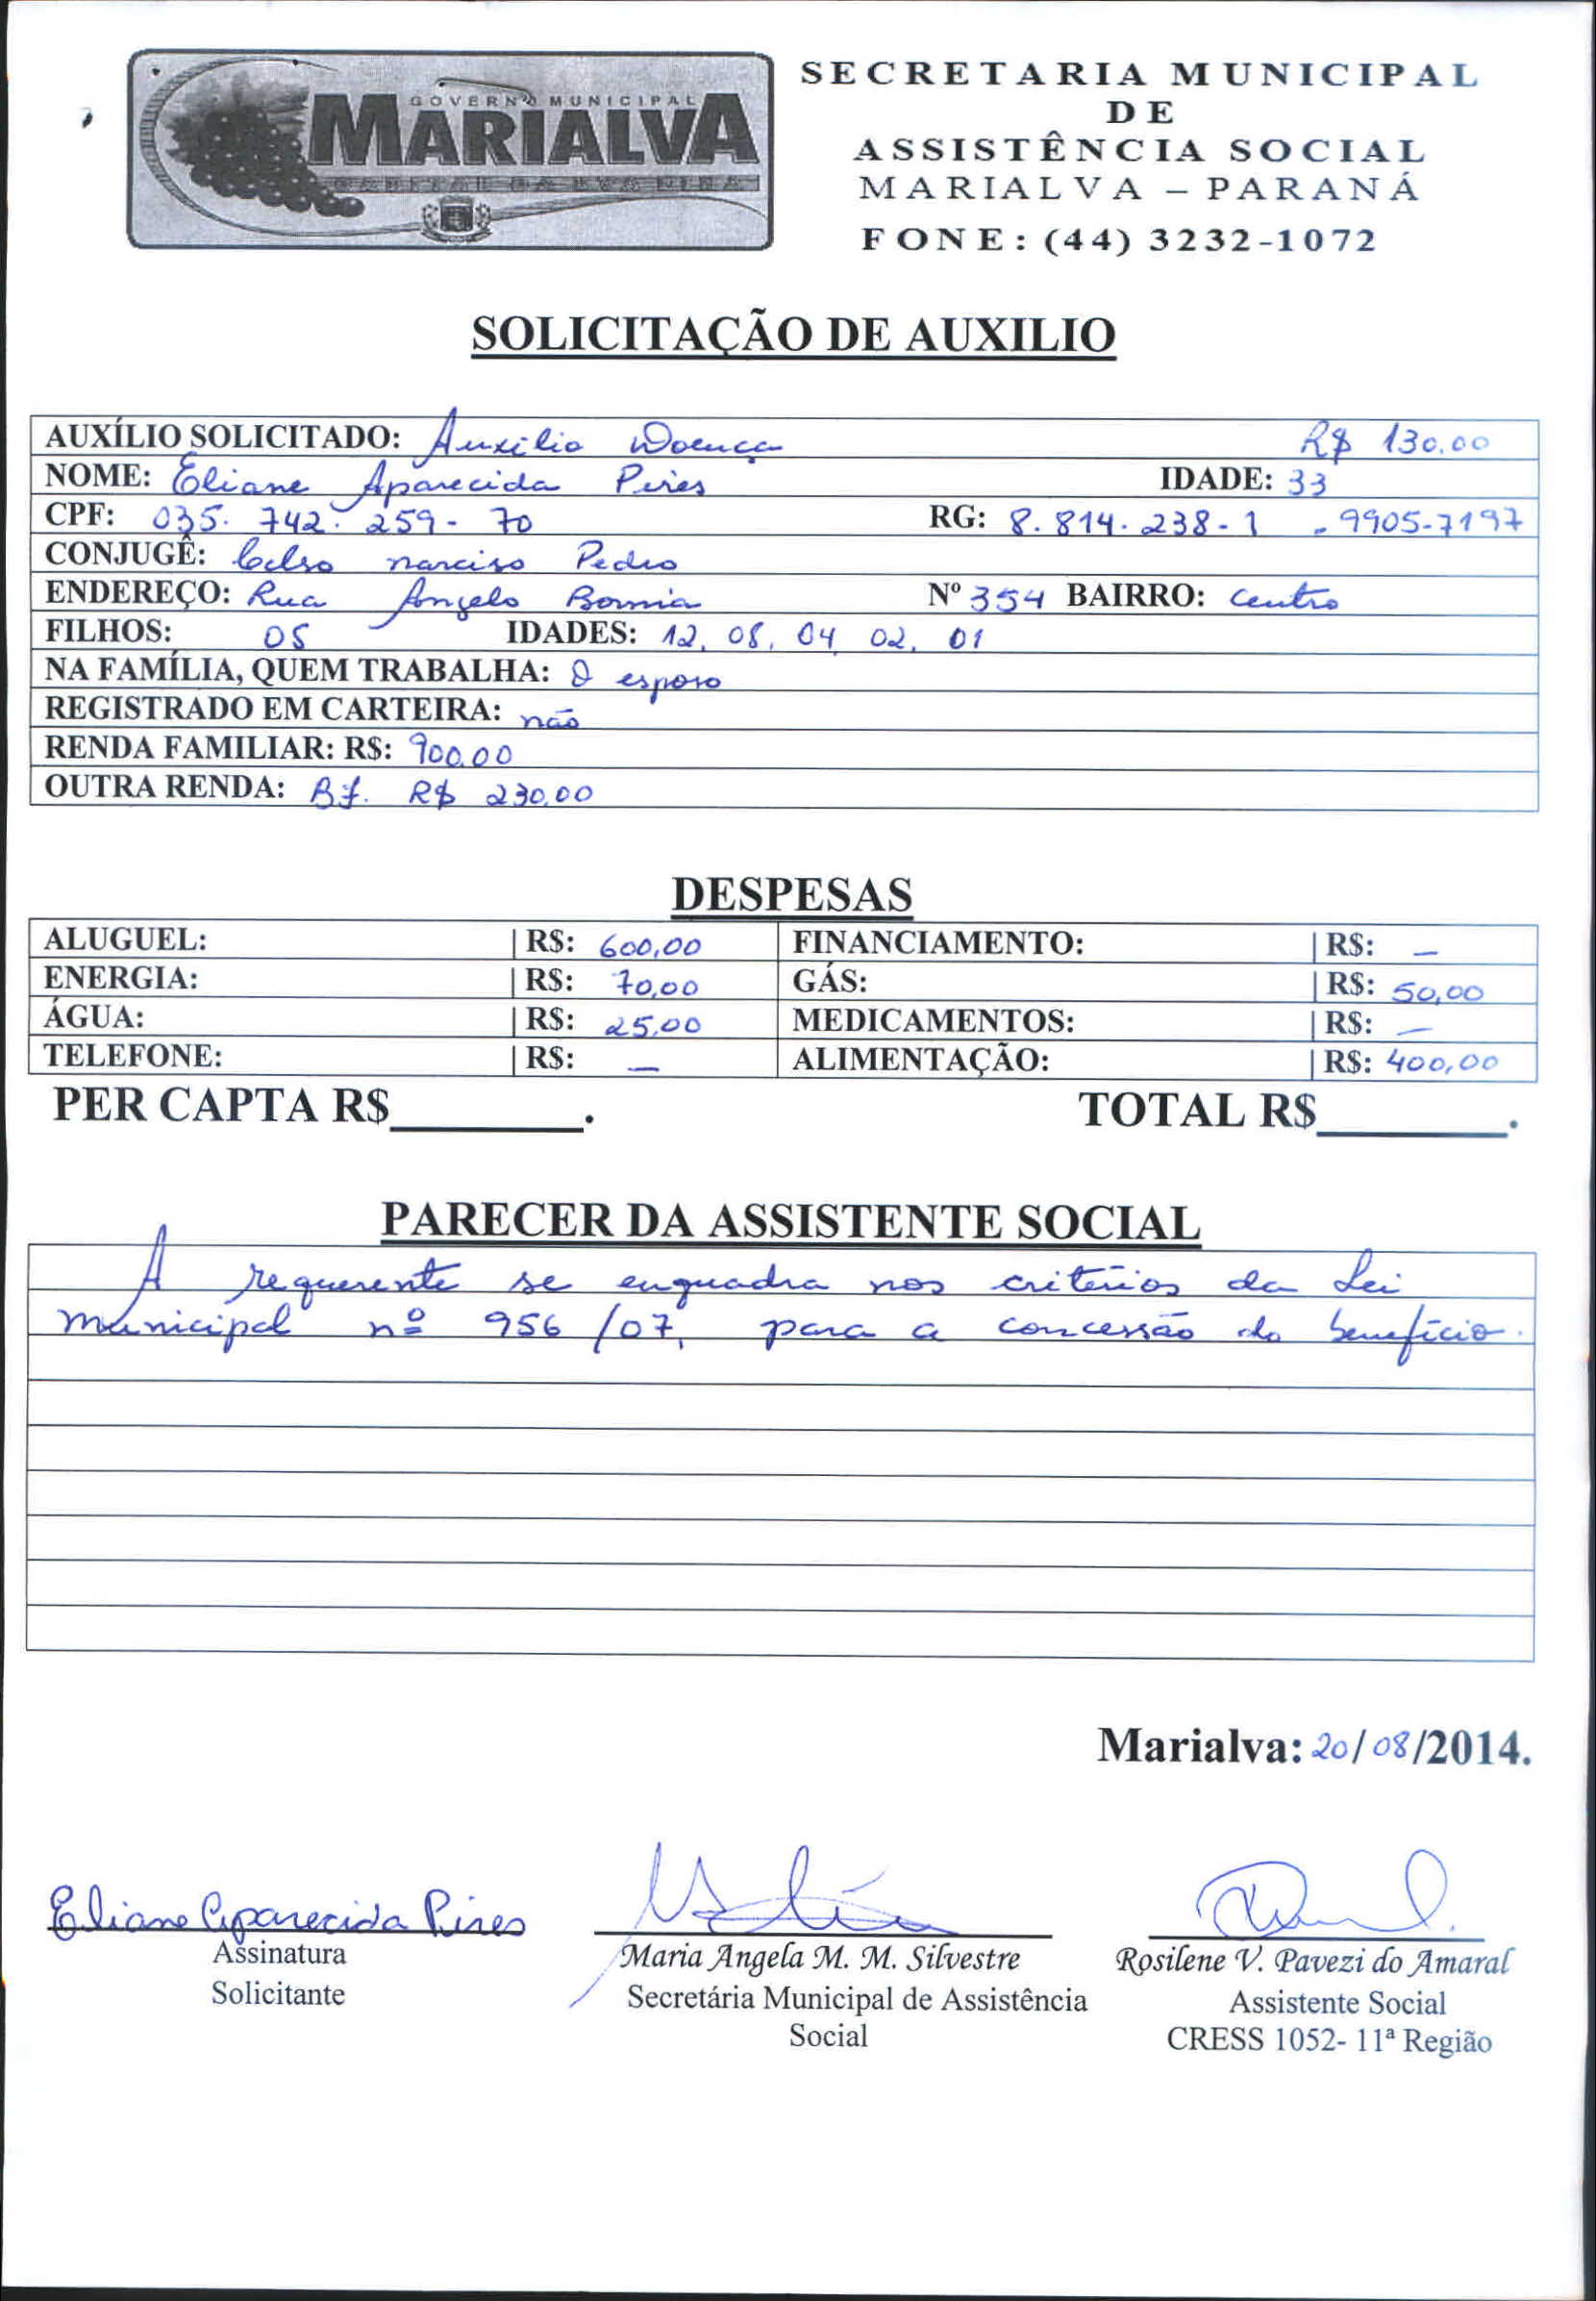 GOVERNO MUNICIPAL
MARIALVA
CAPITAL DA UVA FINA
SECRETARIA MUNICIPAL
DE
ASSISTÊNCIA SOCIAL
MARIALVA – PARANÁ
FONE: (44) 3232-1072
SOLICITAÇÃO DE AUXILIO
AUXÍLIO SOLICITADO: Auxilio Doença R$ 130.00
NOME: Eliane Aparecida Pires IDADE: 33
CPF: 035.742.259-70 RG: 8.814.238-1 . 9905-7197
CONJUGÊ: Celso narciso Pedro
ENDEREÇO: Rua Angelo Bornia Nº 354 BAIRRO: Centro
FILHOS: 05 IDADES: 12, 08, 04 02, 01
NA FAMÍLIA, QUEM TRABALHA: O esposo
REGISTRADO EM CARTEIRA: não
RENDA FAMILIAR: R$: 900,00
OUTRA RENDA: Bf. R$ 230,00
DESPESAS
ALUGUEL: R$: 600,00 FINANCIAMENTO: R$: —
ENERGIA: R$: 70,00 GÁS: R$: 50,00
ÁGUA: R$: 25,00 MEDICAMENTOS: R$: —
TELEFONE: R$: — ALIMENTAÇÃO: R$: 400,00
PER CAPTA R$________. TOTAL R$________.
PARECER DA ASSISTENTE SOCIAL
A requerente se enquadra nos critérios da Lei
Municipal nº 956/07, para a concessão do benefício.
Marialva: 20/08/2014.
Eliane Aparecida Pires
Assinatura
Solicitante
Maria Angela M. M. Silvestre
Secretária Municipal de Assistência
Social
Rosilene V. Pavezi do Amaral
Assistente Social
CRESS 1052- 11ª Região